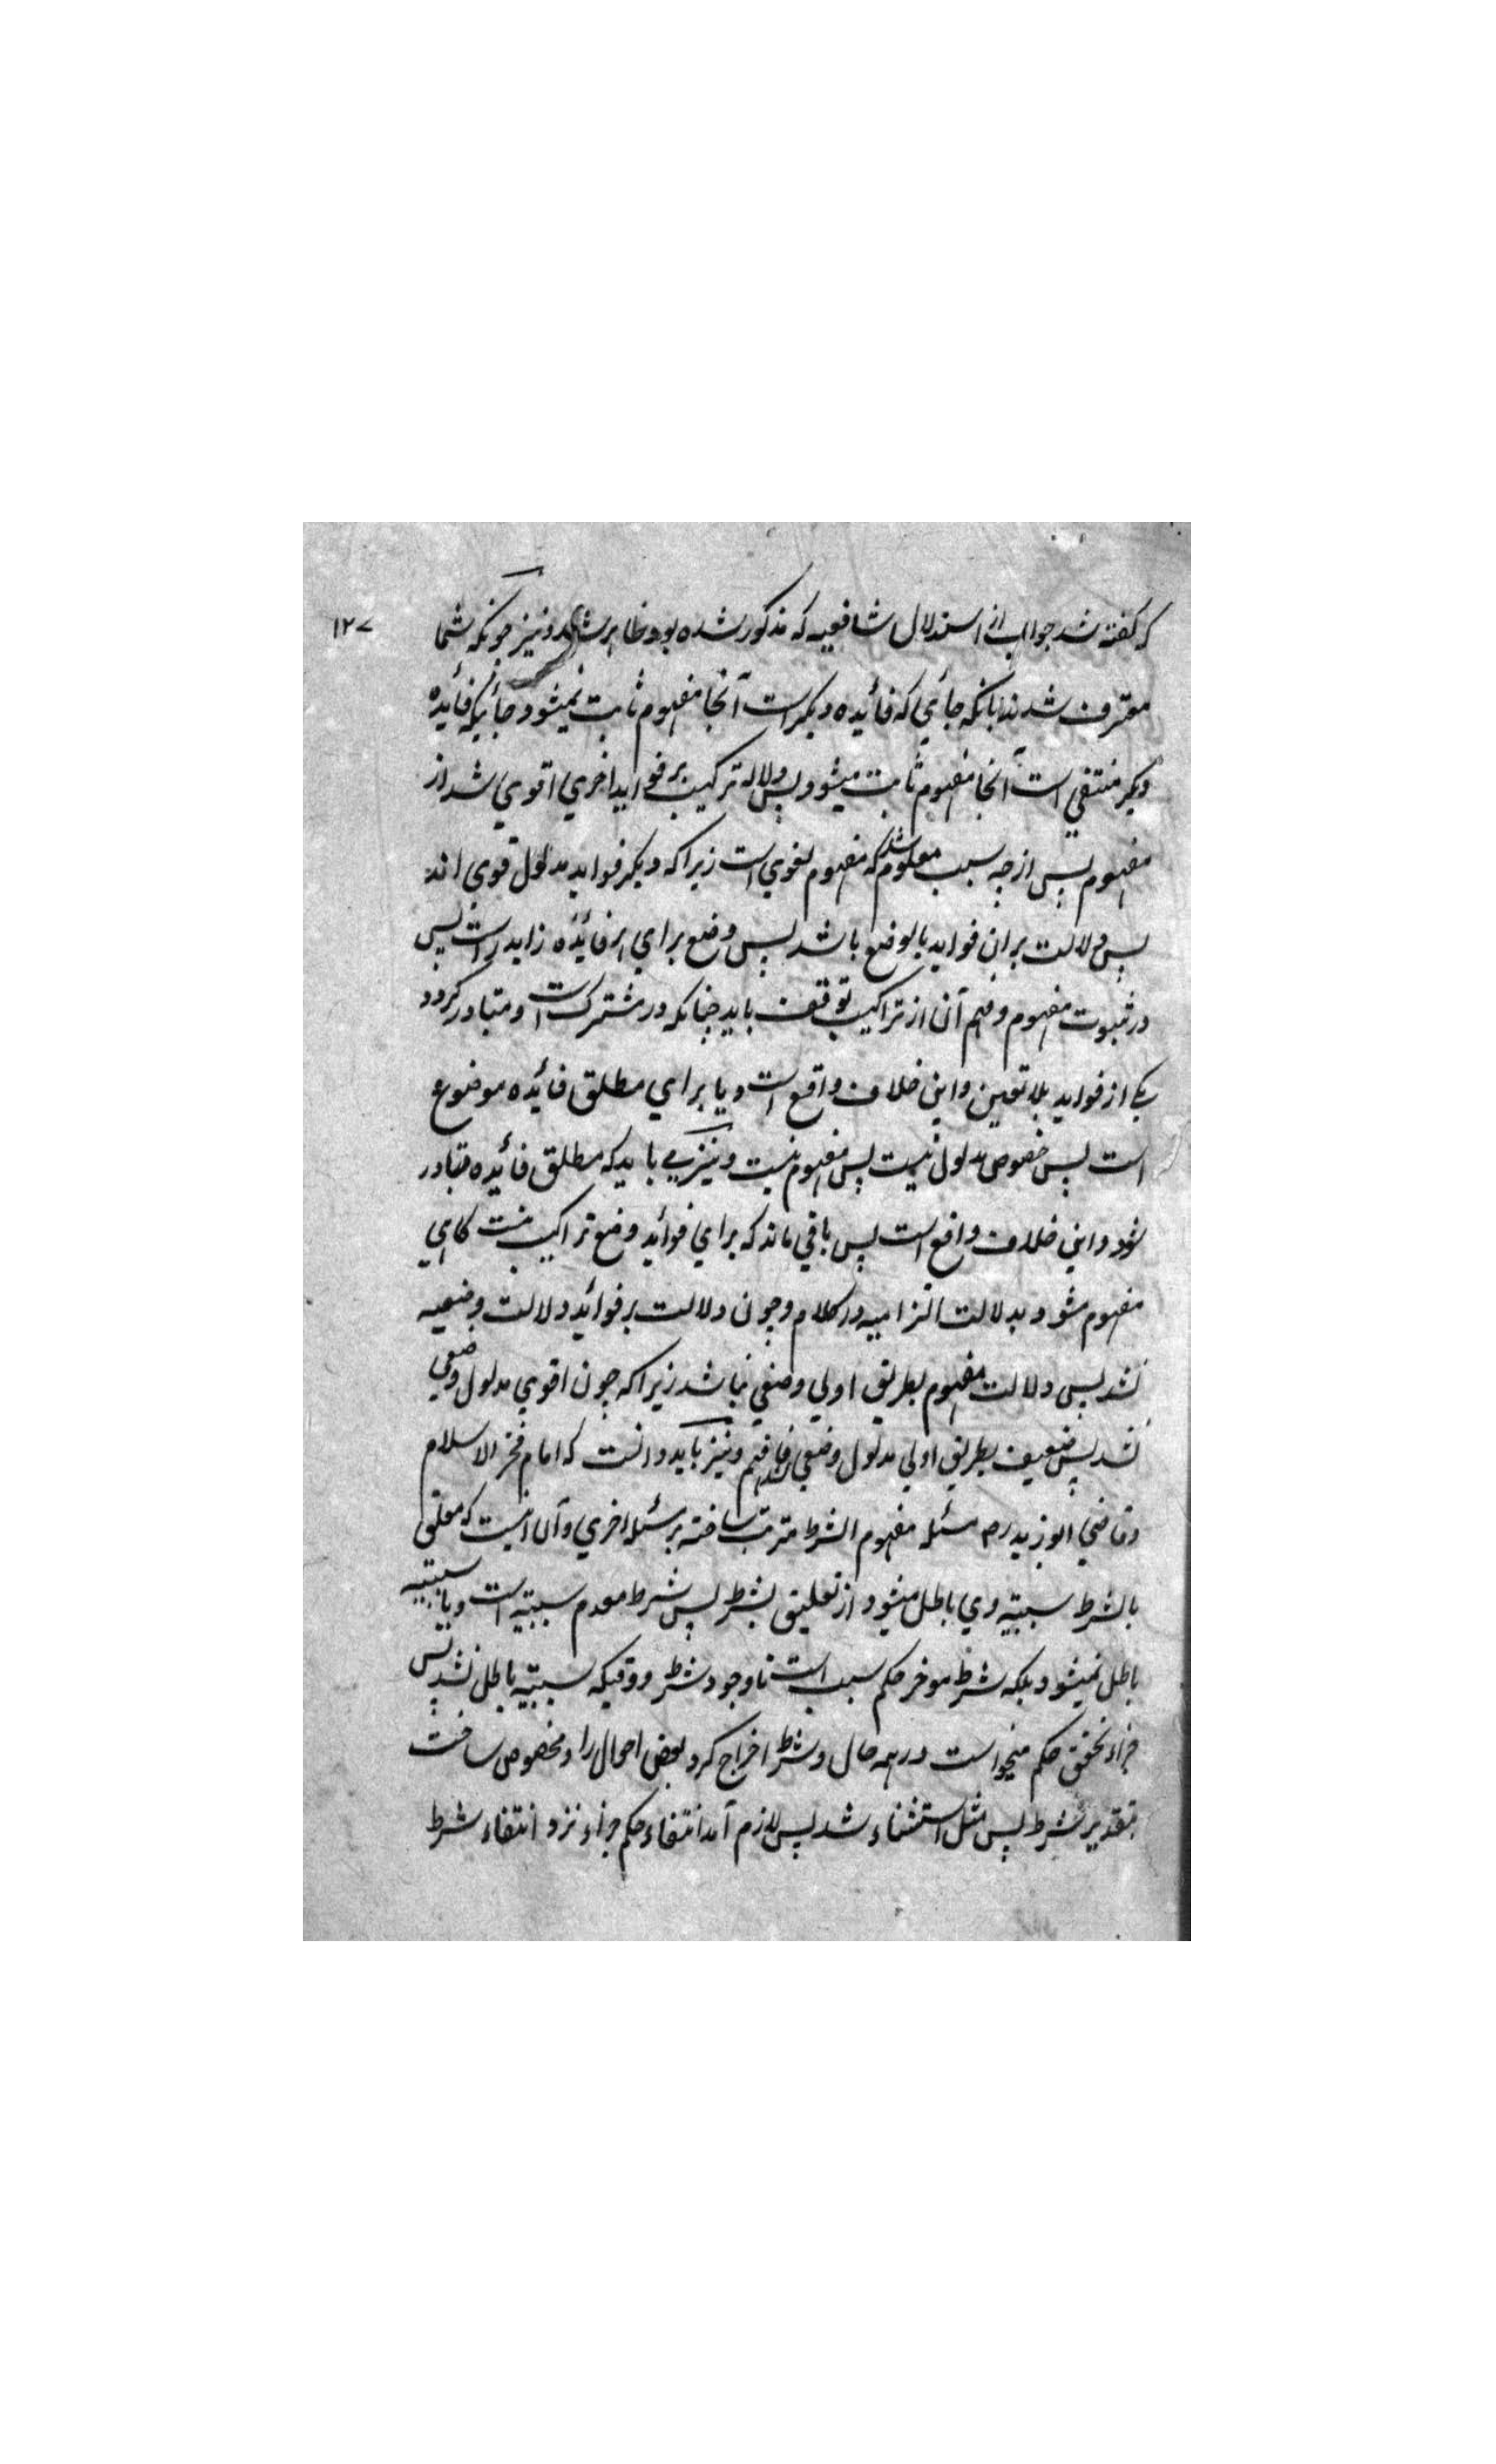 ۱۲۷
که گفته شد جواب از استدلال شافعیه که مذکور شده بود ظاهر شد و نیز چونکه شما
معترف شدند بانکه جائی که فائیده دیگر است آنجا مفهوم ثابت نمیشود جائیکه فائیده
دیگر منتفی است آنجا مفهوم ثابت میشود پس دلاله ترکیب بر فواید اخری اقوی شد از
مفهوم پس از چه سبب معلوم شد که مفهوم لغوی است زیرا که دیگر فواید مدلول قوی اند
پس دلالت بران فواید بالوضع باشد پس وضع برای هر فائیده زاید است پس
در ثبوت مفهوم و فهم آن از تراکیب توقف باید چنانکه در مشترک است و متبادر گردد
یکے از فواید بلا تعین و این خلاف واقع است و یا برای مطلق فائیده موضوع
است پس خصوص مدلول نیست پس مفهوم نیست و نیز می باید که مطلق فائیده متبادر
شود و این خلاف واقع است پس باقی ماند که برای فوائد وضع تراکیب نیست گاهی
مفهوم شود بدلالت التزامیه در کلام و چون دلالت بر فوائد دلالت وضعیه
نشد پس دلالت مفهوم بطریق اولی وضعی نباشد زیرا که چون اقوی مدلول وضعی
نشد پس ضعیف بطریق اولی مدلول وضعی نشد فافهم و نیز باید دانست که امام فخر الاسلام
و قاضی ابو زید رح مسئله مفهوم الشرط مترتب ساخته بر مسئله اخری و آن اینست که معلق
بالشرط سببیه وی باطل میشود از تعلیق بشرط پس شرط معدم سببیه است و یا سببیه
باطل نمیشود بلکه شرط موخر حکم سبب است تا وجود شرط و وقتیکه سببیه باطل نشد پس
جزاء تحقق حکم میخواست در همه حال و شرط اخراج کرد بعض احوال را و مخصوص ساخت
بتقدیر شرط پس مثل استثناء شد پس لازم آمد انتفاء حکم جزاء نزد انتفاء شرط